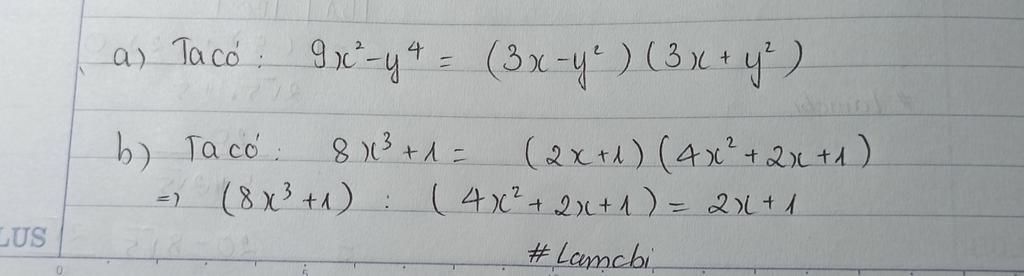 a) Ta có: 9x² - y⁴ = (3x - y²)(3x + y²)
b) Ta có: 8x³ + 1 = (2x + 1)(4x² + 2x + 1)
=> (8x³ + 1) : (4x² + 2x + 1) = 2x + 1
LUS
# Lamcbi
0